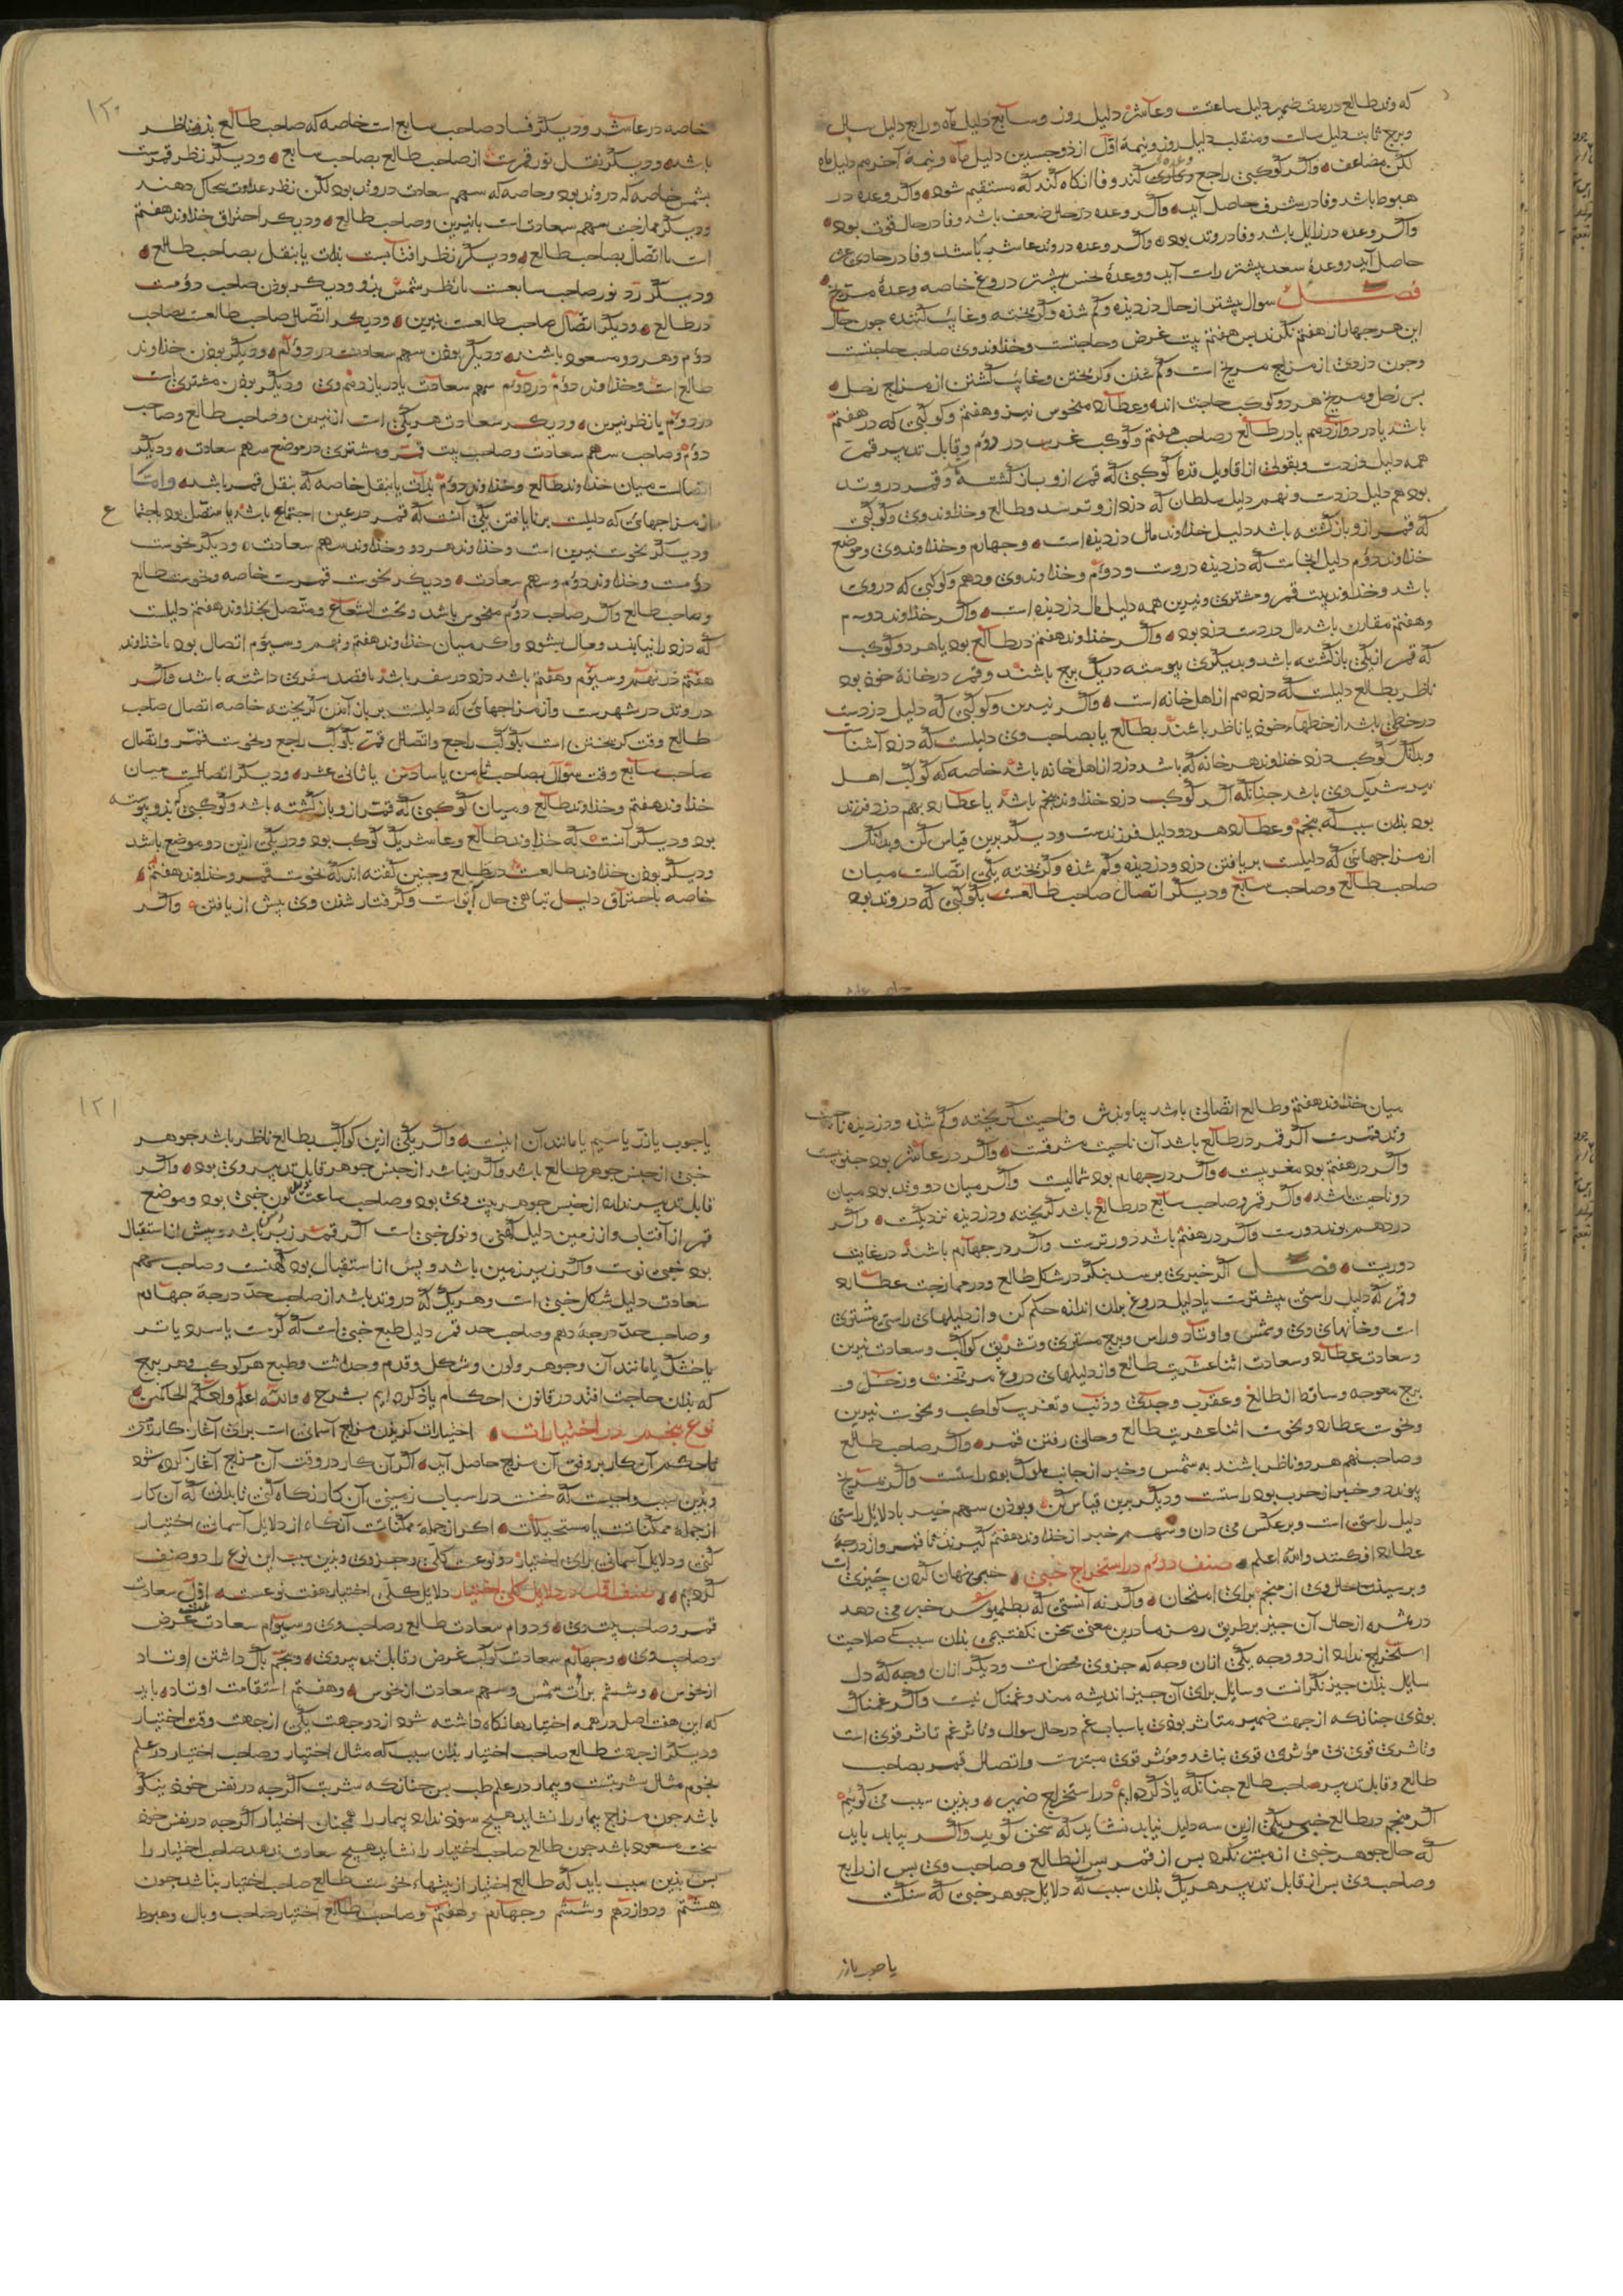 که وتد طالع در مدت ضمیر دلیل ساعتست وعاشر دلیل روز وسابع دلیل ماه ورابع دلیل سال
وبرج ثابت دلیل سالست ومنقلب دلیل روز ونیمهٔ اوّل از ذوجسدین دلیل ماه ونیمهٔ آخر هم دلیل ماه
لکن مضاعف واکر کوکبی راجع وعده کند وفا انکاه کند که مستقیم شود واکر وعده در
هبوط باشد وفا در شرف حاصل آید واکر وعده در حال ضعف باشد وفا در حال قوت بود
واکر وعده در زایل باشد وفا در وتد بود واکر وعده در وتد عاشر باشد وفا در حادی عشر
حاصل آید ووعدهٔ سعد بیشتر راست آید ووعدهٔ نحس بیشتر دروغ خاصه وعدهٔ مریخ
فصل سوال بیشتر از حال دزدیده وکم شده وکریخته وغایب کننده جون حال
این هر جهار از هفتم نکرند بس هفتم بیت غرض وحاجتست وخداوند وی صاحب حاجتست
وجون دزدی از مزاج مریخ است وکم شدن وکریختن وغایب کشتن از مزاج زحل
بس زحل ومریخ هر دو کوکب حاجت اند وعطارد منحوس نیز وهفتم وکوکبی که در هفتم
باشد یا در دوازدهم یا در طالع وصاحب هفتم وکوکب غریب در دوم وقابل تدبیر قمر
همه دلیل دزدست وبقولی از اقاویل قدما کوکبی که قمر ازو باز کشته وقمر در وتد
بود هم دلیل دزدست ونهم دلیل سلطان که دزد ازو ترسد وطالع وخداوند وی وکوکبی
که قمر ازو باز کشته باشد دلیل خداوند مال دزدیده است وجهارم وخداوند وی وموضع
خداوند دوم دلیل آنجاست که دزدیده دروست ودوم وخداوند وی ودهم وکوکبی که در وی
باشد وخداوند بیت قمر ومشتری ونیرین همه دلیل مال دزدیده است واکر خداوند دوم
وهفتم مقارن باشد مال در دست دزد بود واکر خداوند هفتم در طالع بود یا هر دو کوکب
که قمر از یکی باز کشته باشد وبدیکری پیوسته در یک برج باشند وقمر در خانهٔ خود بود
ناظر بطالع دلیلست که دزد هم از اهل خانه است واکر نیرین وکوکبی که دلیل دزدست
در خطی باشد از خطهاء خود یا ناظر باشند بطالع یا بصاحب وی دلیلست که دزد آشناست
وبدانک کوکب دزد خداوند هر خانه که باشد دزد از اهل خانه باشد خاصه که کوکب اهل
نیز شریک وی باشد جنانکه اکر کوکب دزد خداوند پنجم باشد یا عطارد بود هم دزد فرزند
بود بدان سبب که پنجم وعطارد هر دو دلیل فرزندست ودیکر برین قیاس کن وبدانک
از مزاجهائی که دلیلست بر یافتن دزد ودزدیده وکم شده وکریخته یکی اتصالست میان
صاحب طالع وصاحب سابع ودیکر اتصال صاحب طالعست بکوکبی که در وتد بود
۱۲۰
خاصه در عاشر ودیکر فساد صاحب سابع است خاصه که صاحب طالع بدو ناظر
باشد ودیکر نقل نور قمرست از صاحب طالع بصاحب سابع ودیکر نظر قمرست
بشمس خاصه که در وتد بود وخاصه که سهم سعادت در وتد بود لکن نظر عداوت بحال دهند
ودیکر ممازجت سهم سعادات است با نیرین وصاحب طالع ودیکر احتراق خداوند هفتم
است با اتصال بصاحب طالع ودیکر نظر آفتابست بذات یا بنقل بصاحب طالع
ودیکر رد نور صاحب سابعست با نظر شمس بدو ودیکر بودن صاحب دوّمست
در طالع ودیکر اتصال صاحب طالعست بنیرین ودیکر اتصال صاحب طالعست بصاحب
دوم وهر دو مسعود باشند ودیکر بودن سهم سعادتست در دوم ودیکر بودن خداوند
طالع است وخداوند دوم در دوم سهم سعادت یا در یازدهم وی ودیکر بودن مشتری است
در دوم یا نظر نیرین ودیکر سعادت هر یکی است از نیرین وصاحب طالع وصاحب
دوم وصاحب سهم سعادت وصاحب بیت قمر ومشتری در موضع سهم سعادت ودیکر
اتصالست میان خداوند طالع وخداوند دوم بذات یا بنقل خاصه که بنقل قمر باشد وامّا
از مزاجهائی که دلیلست بر نایافتن یکی آنست که قمر در عین اجتماع باشد یا متصل بود باجتماع
ودیکر نحوست نیرین است وخداوند هر دو وخداوند سهم سعادت ودیکر نحوست
دومست وخداوند دوم وسهم سعادت ودیکر نحوست قمرست خاصه ونحوست طالع
وصاحب طالع واکر صاحب دوم منحوس باشد وتحت الشعاع ومتصل بخداوند هفتم دلیلست
که دزد را نیابند ومال بشود واکر میان خداوند هفتم ونهم وسیوم اتصال بود یا خداوند
هفتم در نهم وسیوم وهفتم باشد دزد در سفر باشد یا قصد سفری داشته باشد واکر
در وتد در شهرست واز مزاجهائی که دلیلست بر باز آمدن کریخته خاصه اتصال صاحب
طالع وقت کریختن است بکوکب راجع واتصال قمر بکوکب راجع ونحوست قمر واتصال
صاحب سابع وقت سوال بصاحب ثامن یا سادس یا ثانی عشر ودیکر اتصالست میان
خداوند هفتم وخداوند طالع ومیان کوکبی که قمر ازو باز کشته باشد وکوکبی که بدو پیوسته
بود ودیکر آنست که خداوند طالع وعاشر یک کوکب بود ودر یکی ازین دو موضع باشد
ودیکر بودن خداوند طالعست در طالع وجنین کفته اند که نحوست قمر وخداوند هفتم
خاصه باحتراق دلیل تباهی حال آبق است وکرفتار شدن وی پیش از یافتن واکر
میان خداوند هفتم وطالع اتصالی باشد بیاوندش وناحیت کریخته وکم شده ودزدیده ناحیت
وتد قمرست اکر قمر در طالع باشد آن ناحیت مشرقست واکر در عاشر بود جنوبیست
واکر در هفتم بود مغربیست واکر در جهارم بود شمالیست واکر میان دو وتد بود میان
دو ناحیت باشد واکر قمر وصاحب سابع در طالع باشد کریخته ودزدیده نزدیکست واکر
در دهم بوند دورست واکر در هفتم باشد دورترست واکر در جهارم باشد در غایت
دوریست فصل اکر خبری برسد بنکر در شکل طالع ودر ممازجت عطارد
وقمر که دلیل راستی بیشترست یا دلیل دروغ بر آن اندازه حکم کن واز دلیلهای راستی مشتری
است وخانهای وی وشمس واوتاد وراس وبرج مستوی وتشریق کواکب وسعادت نیرین
وسعادت عطارد وسعادت اثناعشریت طالع واز دلیلهای دروغ مریخست وزحل و
برج معوجه وساقط از طالع وعقرب وجدی وذنب وتغریب کواکب ونحوست نیرین
ونحوست عطارد ونحوست اثناعشریت طالع وخالی رفتن قمر واکر صاحب طالع
وصاحب نهم هر دو ناظر باشند بشمس وخبر از جانب ملوک بود راستست واکر بمریخ
پیوندد وخبر از حرب بود راستست ودیکر برین قیاس کن وبودن سهم خبر با دلایل راستی
دلیل راستی است وبرعکس می دان وسهم خبر از خداوند هفتم کیرند تا قمر واز درجهٔ
عطارد افکنند والله اعلم صنف دوم در استخراج خبی خبی نهان کردن چیزی است
وپرسیدن حال وی از منجم برای امتحان واکر نه آنستی که بطلمیوس خبر می دهد
در ثمره از حال آن چیز بر طریق رمز ما درین معنی سخن نکفتیمی بدان سبب که صلاحیت
استخراج ندارد از دو وجه یکی از آن وجه که جزوی محض است ودیکر از آن وجه که دل
سایل بدان چیز نکرانست وسایل برای آن چیز اندیشه مند وغمناک نیست واکر غمناک
بودی جنانکه از جهت ضمیر متاثر بودی باسباب غم در حال سوال وتاثر غم تاثر قوی است
وتاثری قوی بی مؤثری قوی نباشد ومؤثر قوی مبتزست واتصال قمر بصاحب
طالع وقابل تدبیر صاحب طالع جنانکه یاد کرده ایم در استخراج ضمیر وبدین سبب می کوئیم
اکر منجم در طالع خبی یکی ازین سه دلیل نیابد نشاید که سخن کوید واکر بیابد باید
که حال جوهر خبی از مبتز نکرد بس از قمر بس از طالع وصاحب وی بس از رابع
وصاحب وی بس از قابل تدبیر هر یک بدان سبب که دلایل جوهر خبی که سنکست
یا چوب یا زر
۱۲۱
یا چوب یا زر یا سیم یا مانند آن اینست واکر یکی ازین کواکب بطالع ناظر باشد جوهر
خبی از جنس جوهر طالع باشد واکر نباشد از جنس جوهر قابل تدبیر وی بود واکر
قابل تدبیر ندارد از جنس جوهر بیت وی بود وصاحب ساعت دلیل لون خبی بود وموضع
قمر از آفتاب واز زمین دلیل کهنی ونوی خبی است اکر قمر زبر زمین باشد وپیش از استقبال
بود خبی نوست واکر زیر زمین باشد وپس از استقبال بود کهنست وصاحب سهم
سعادت دلیل شکل خبی است وهر یک که در وتد باشد از صاحب حدّ درجهٔ جهارم
وصاحب حدّ درجهٔ دهم وصاحب حد قمر دلیل طبع خبی است که کرمست یا سرد یا تر
یا خشک یا مانند آن وجوهر ولون وشکل وقدم وحداثت وطبع هر کوکب وهر برج
که بدان حاجت افتد در قانون احکام یاد کرده ایم بشرح والله اعلم واحکم الحاکمین
نوع پنجم در اختیارات اختیارات کزیدن مزاج آسمانی است برای آغاز کار زمینی
تا حکم آن کار بر وفق آن مزاج حاصل آید اکر آن کار در وقت آن مزاج آغاز کرده شود
وبدین سبب واجبست که نخست در اسباب زمینی آن کار نکاه کنی تا بدانی که آن کار
از جملهٔ ممکناتست یا مستحیلات اکر از جملهٔ ممکناتست آنکاه از دلایل آسمانی اختیار
کنی ودلایل آسمانی برای اختیار دو نوعست کلی وجزوی وبدین سبب این نوع را دو صنف
کردیم صنف اول در دلایل کلی اختیار دلایل کلی اختیار هفت نوعست اوّل سعادت
قمر وصاحب بیت وی ودوم سعادت طالع وصاحب وی وسیوم سعادت بیت غرض
وصاحب وی وجهارم سعادت کوکب غرض وقابل تدبیر وی وپنجم پاک داشتن اوتاد
از نحوس وششم برائت شمس وسهم سعادت از نحوس وهفتم استقامت اوتاد باید
که این هفت اصل در همه اختیارها نکاه داشته شود از دو جهت یکی از جهت وقت اختیار
ودیکر از جهت طالع صاحب اختیار بدان سبب که مثال اختیار وصاحب اختیار در علم
نجوم مثال شربتست وبیمار در علم طب پس جنانکه شربت اکرجه در نفس خود نیکو
باشد جون مزاج بیمار را نشاید هیچ سود ندارد بیمار را همچنان اختیار اکرجه در نفس خود
سخت مسعود باشد جون طالع صاحب اختیار را نشاید هیچ سعادت ندهد صاحب اختیار را
بس بدین سبب باید که طالع اختیار از بیتهاء نحوست طالع صاحب اختیار نباشد جون
هشتم ودوازدهم وششم وجهارم وهفتم وصاحب طالع اختیار صاحب وبال وهبوط